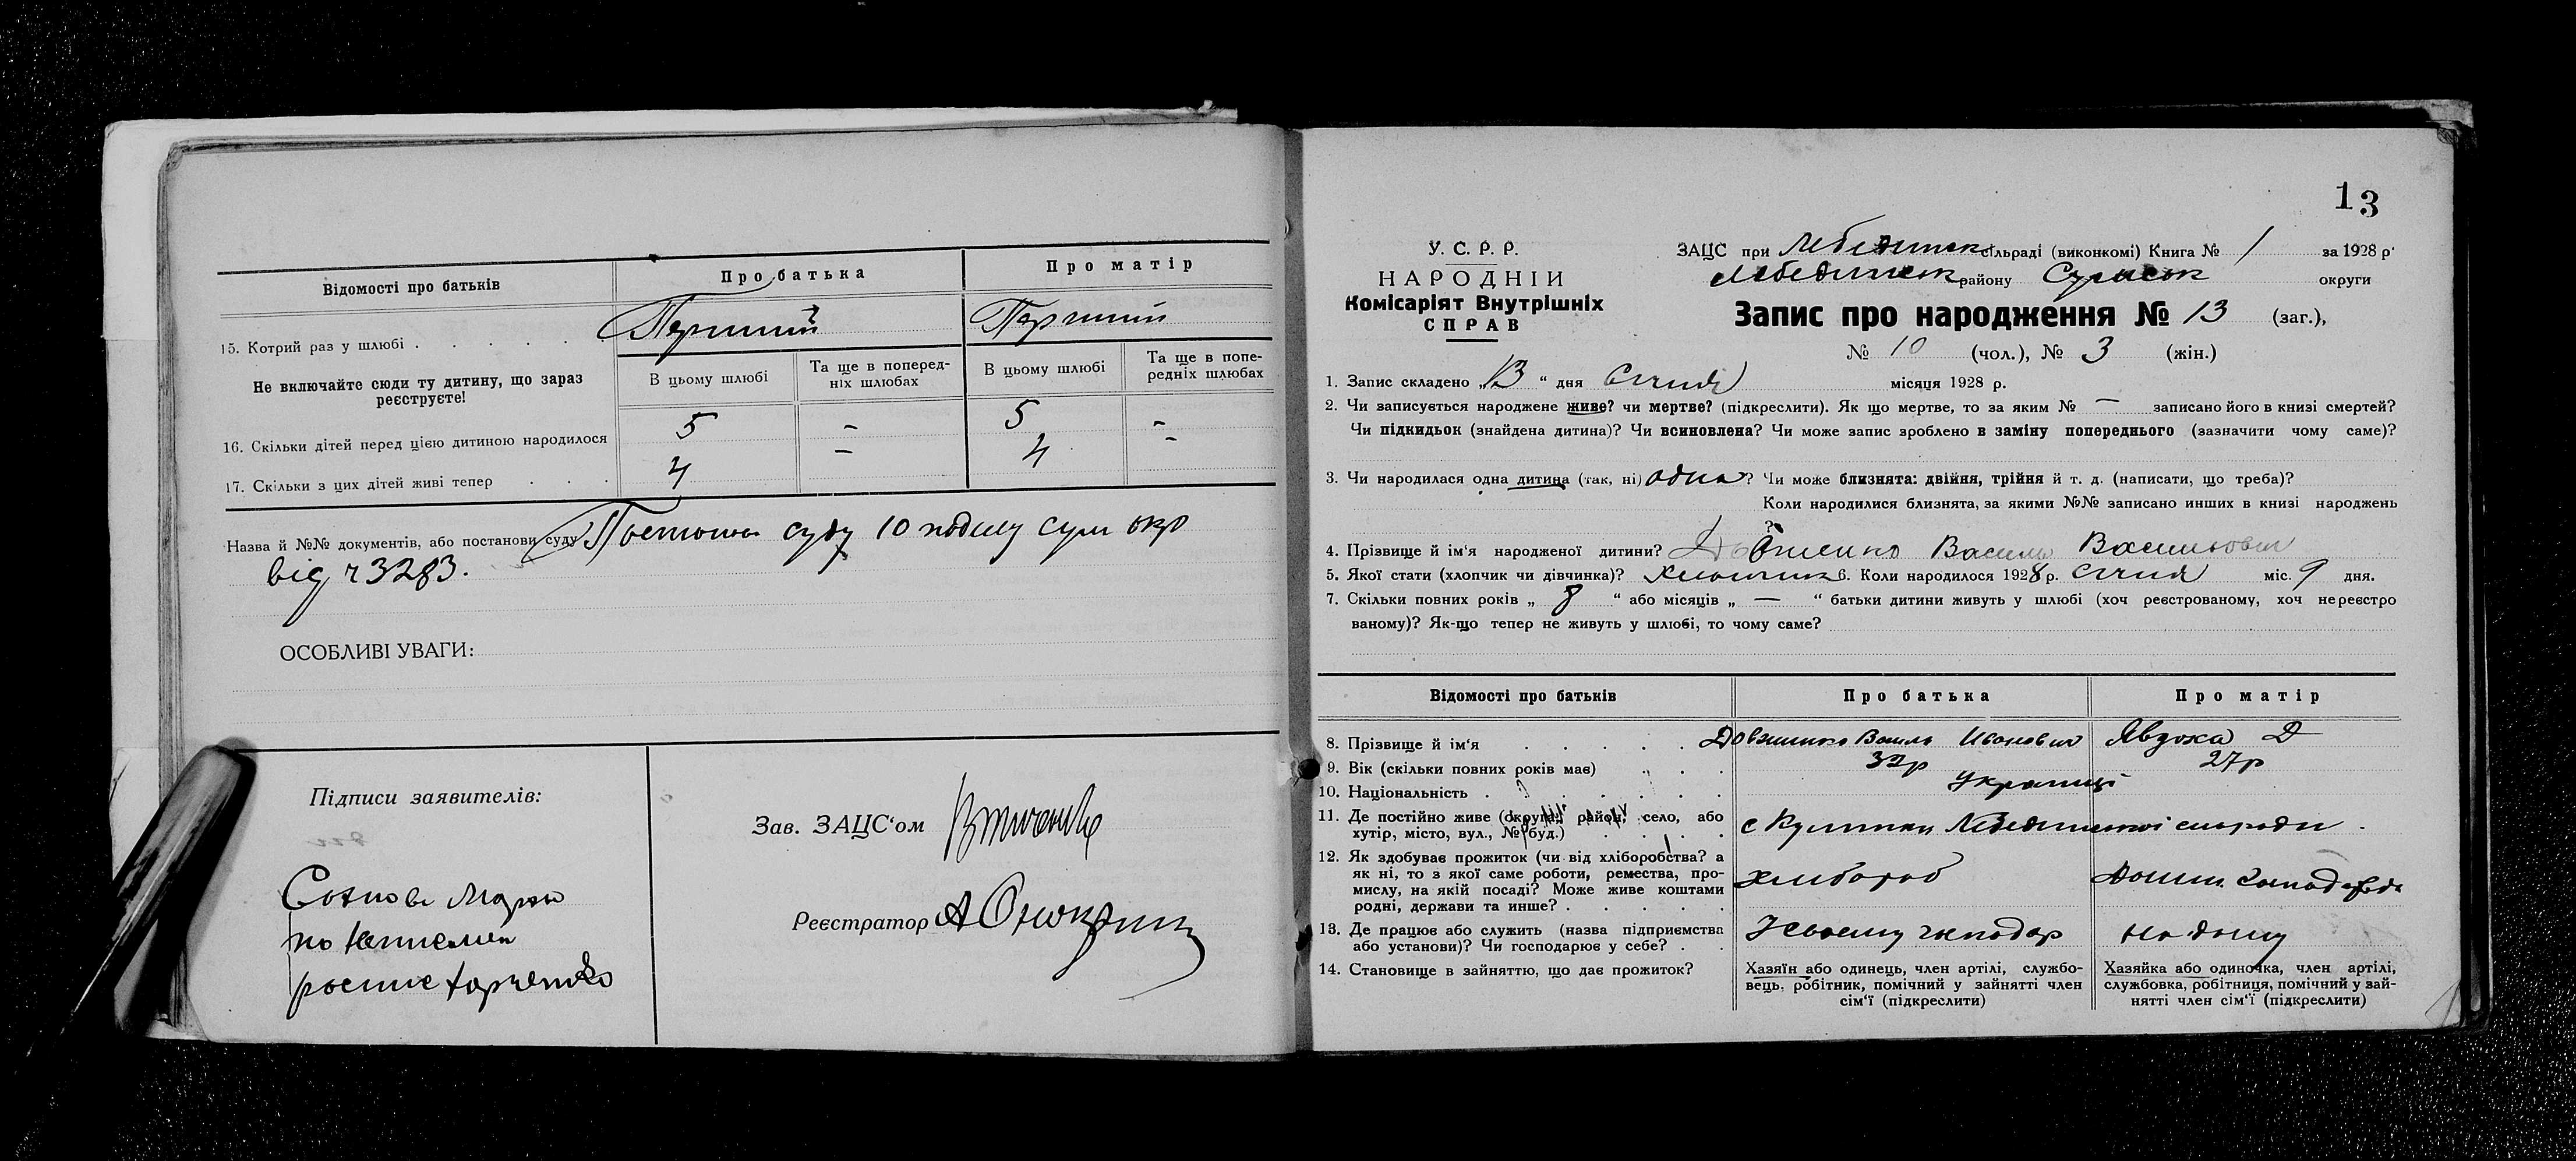 Відомості про батьків
Про батька
Про матір
15. Котрий раз у шлюбі . . . . .
Перший
Перший
Не включайте сюди ту дитину, що зараз реєструєте!
В цьому шлюбі
Та ще в поперед-
ніх шлюбах
В цьому шлюбі
Та ще в попе-
редніх шлюбах
16. Скільки дітей перед цією дитиною народилося
5 - 5 -
17. Скільки з цих дітей живі тепер . . .
4 - 4 -
Назва й №№ документів, або постанови суду суду 10 окр
від 3283.
ОСОБЛИВІ УВАГИ:
Підписи заявителів:
Зав. ЗАЦС'ом
Реєстратор
13
У. С. Р. Р.
НАРОДНІЙ
Комісаріят Внутрішніх
СПРАВ
ЗАЦС при Лебединск сільраді (виконкомі) Книга № 1 за 1928 р.
Лебединск району Сумськ округи
Запис про народження № 13 (заг.),
№ 10 (чол.), № 3 (жін.)
1. Запис складено „13“ дня Січня місяця 1928 р.
2. Чи записується народжене живе? чи мертве? (підкреслити). Як що мертве, то за яким № — записано його в книзі смертей?
Чи підкидьок (знайдена дитина)? Чи всиновлена? Чи може запис зроблено в заміну попереднього (зазначити чому саме)?
3. Чи народилася одна дитина (так, ні) одна? Чи може близнята: двійня, трійня й т. д. (написати, що треба)?
Коли народилися близнята, за якими №№ записано инших в книзі народжень
?
4. Прізвище й ім'я народженої дитини? Василь Васильович
5. Якої стати (хлопчик чи дівчинка)? Хлопчик 6. Коли народилося 1928 р. Січня міс. 9 дня.
7. Скільки повних років „ 8 “ або місяців „ — “ батьки дитини живуть у шлюбі (хоч реєстрованому, хоч нереєстро
ваному)? Як-що тепер не живуть у шлюбі, то чому саме?
Відомості про батьків
Про батька
Про матір
8. Прізвище й ім'я . . . . .
Василь Иванович
Явдоха Д
9. Вік (скільки повних років має) . . .
32р
27р
10. Національність . . . . . .
Українці
11. Де постійно живе (округа, район, село, або
хутір, місто, вул., № буд.) . . . .
с
12. Як здобуває прожиток (чи від хліборобства? а
як ні, то з якої саме роботи, ремества, про-
мислу, на якій посаді? Може живе коштами
родні, держави та инше? . . . .
хлибороб
13. Де працює або служить (назва підприємства
або установи)? Чи господарює у себе? . .
У своему
на дому
14. Становище в зайняттю, що дає прожиток?
Хазяїн або одинець, член артілі, службо-
вець, робітник, помічний у зайнятті член
сім'ї (підкреслити)
Хазяйка або одиночка, член артілі,
службовка, робітниця, помічний у зай-
нятті член сім'ї (підкреслити)